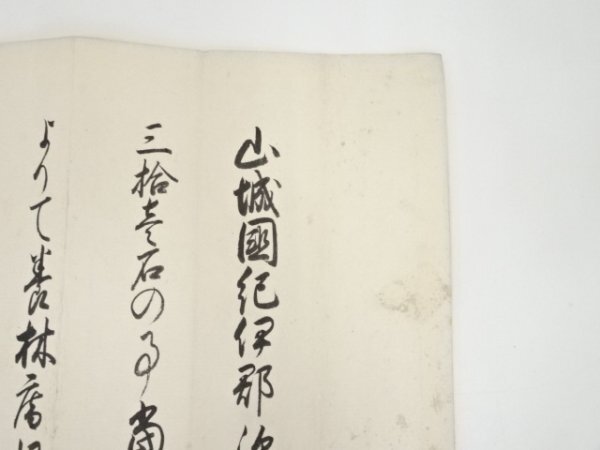 山城國紀伊郡
三拾壱石の事当
よりて養林庵